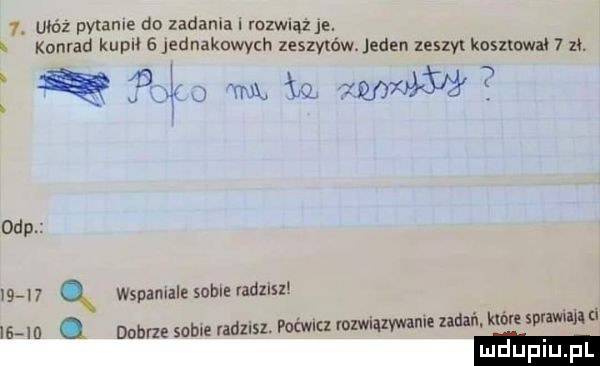 7. Ułóż pytanie do zadania i rozwiąż je.
Konrad kupił 6 jednakowych zeszytów. Jeden zeszyt kosztował 7 zł.
Po co mu te zeszyty ?
Odp.:
19-17 Wspaniale sobie radzisz!
16-10 Dobrze sobie radzisz. Poćwicz rozwiązywanie zadań, które sprawiają ci
mdupiu.pl